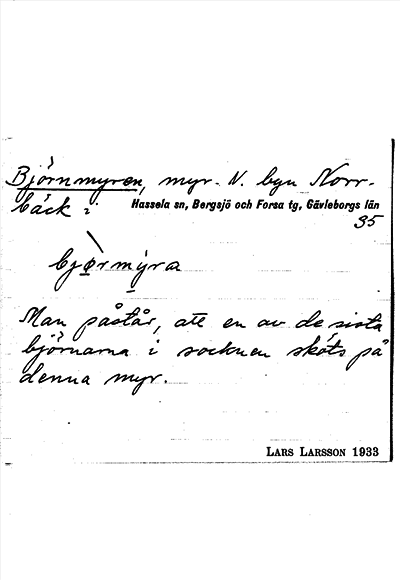 Björnmyren, myr. N. byn Norr-
bäck i Hassela sn, Bergsjö och Forsa tg, Gävleborgs län
35
bjørmýra
Man påstår, att en av de sista
björnarna i socknen sköts på
denna myr.
LARS LARSSON 1933